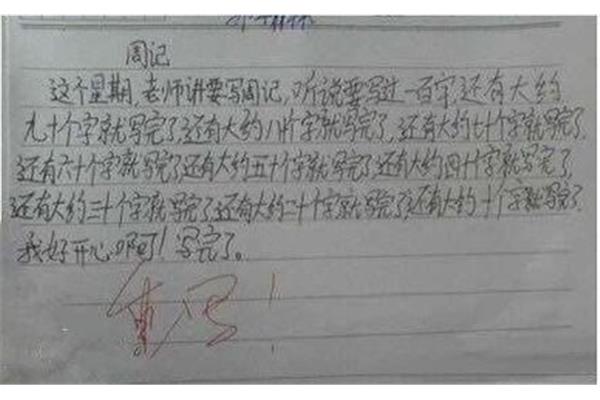 周记
这个星期,老师讲要写周记,听说要写过一百字,还有大约
九十个字就写完了,还有大约八十个字就写完了,还有大约七十个字就写完了,
还有六十个字就写完了,还有大约五十个字就写完了,还有大约四十个字就写完了,
还有大约三十个字就写完了,还有大约二十个字就写完了,还有大约十个字就写完了,
我好开心啊!写完了。
重写!